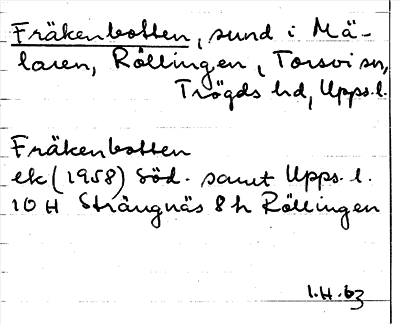 Fräkenbotten, sund i Mä-
laren, Rällingen, Torsvi sn,
Trögds hd, Upps. l.
Fräkenbotten
ek (1958) Söd. samt Upps. l.
10 H Strängnäs 8 h Rällingen
I.H. 63